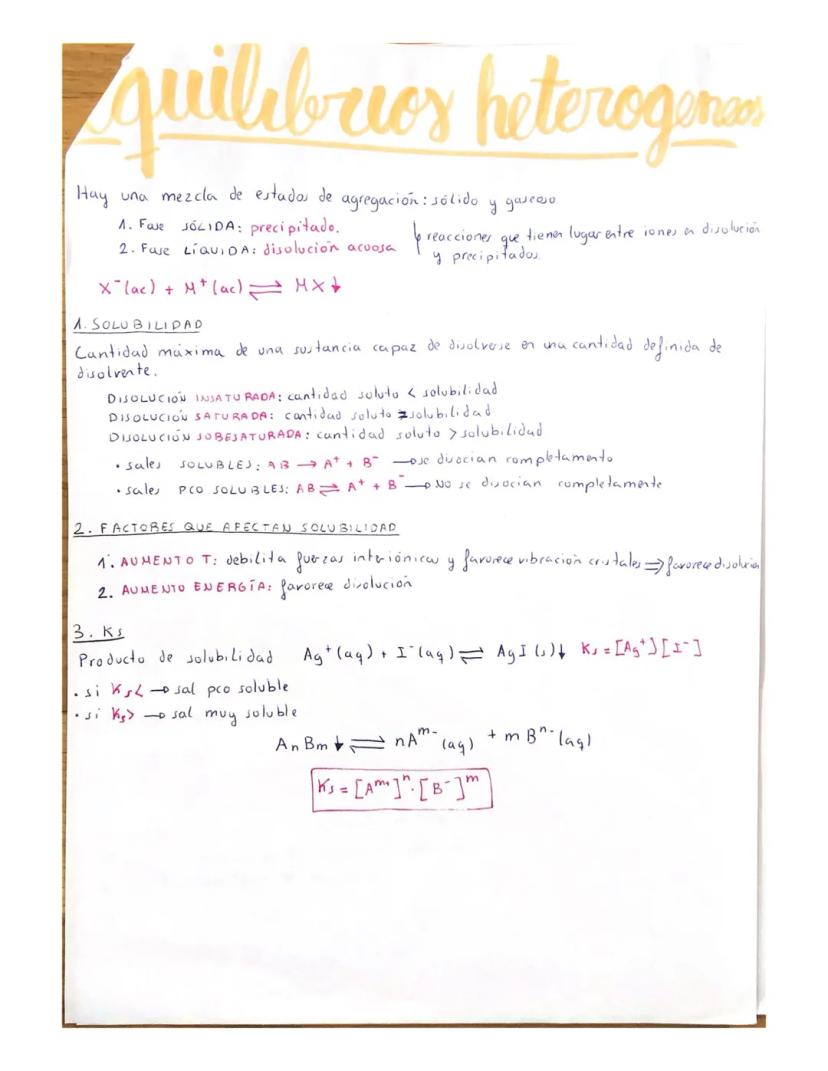 Equilibrios heterogeneos
Hay una mezcla de estados de agregación: sólido y gaseoso.
1. Fase SÓLIDA: precipitado.
2. Fase LÍQUIDA: disolución acuosa
↳ reacciones que tienen lugar entre iones en disolución
y precipitados.
X⁻(ac) + M⁺(ac) ⇌ MX↓
1. SOLUBILIDAD
Cantidad máxima de una sustancia capaz de disolverse en una cantidad definida de
disolvente.
DISOLUCIÓN INSATURADA: cantidad soluto < solubilidad
DISOLUCIÓN SATURADA: cantidad soluto = solubilidad
DISOLUCIÓN SOBESATURADA: cantidad soluto > solubilidad
• sales SOLUBLES: AB → A⁺ + B⁻ → se disocian completamente
• sales PCO SOLUBLES: AB ⇌ A⁺ + B⁻ → NO se disocian completamente
2. FACTORES QUE AFECTAN SOLUBILIDAD
1. AUMENTO T: debilita fuerzas interiónicas y favorece vibración cristales ⇒ favorece disolución
2. AUMENTO ENERGÍA: favorece disolución
3. Ks
Producto de solubilidad Ag⁺(aq) + I⁻(aq) ⇌ AgI (s)↓ Ks = [Ag⁺][I⁻]
• si Ks< → sal pco soluble
• si Ks> → sal muy soluble
AnBm↓ ⇌ nAᵐ⁻(aq) + mBⁿ⁻(aq)
Ks = [Aᵐ⁺]ⁿ · [B⁻]ᵐ